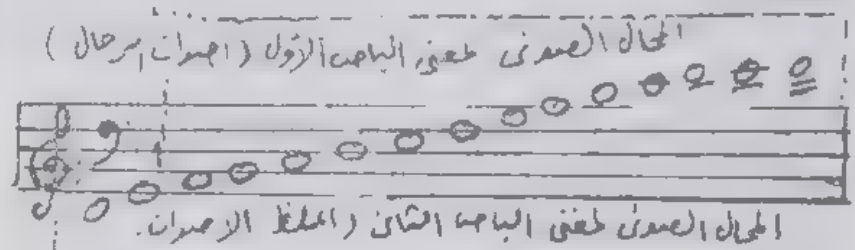 المجال الصوتى لمغنى الباص الأول ( اصوات الرجال )
المجال الصوتى لمغنى الباص الثانى ( اغلظ الاصوات .